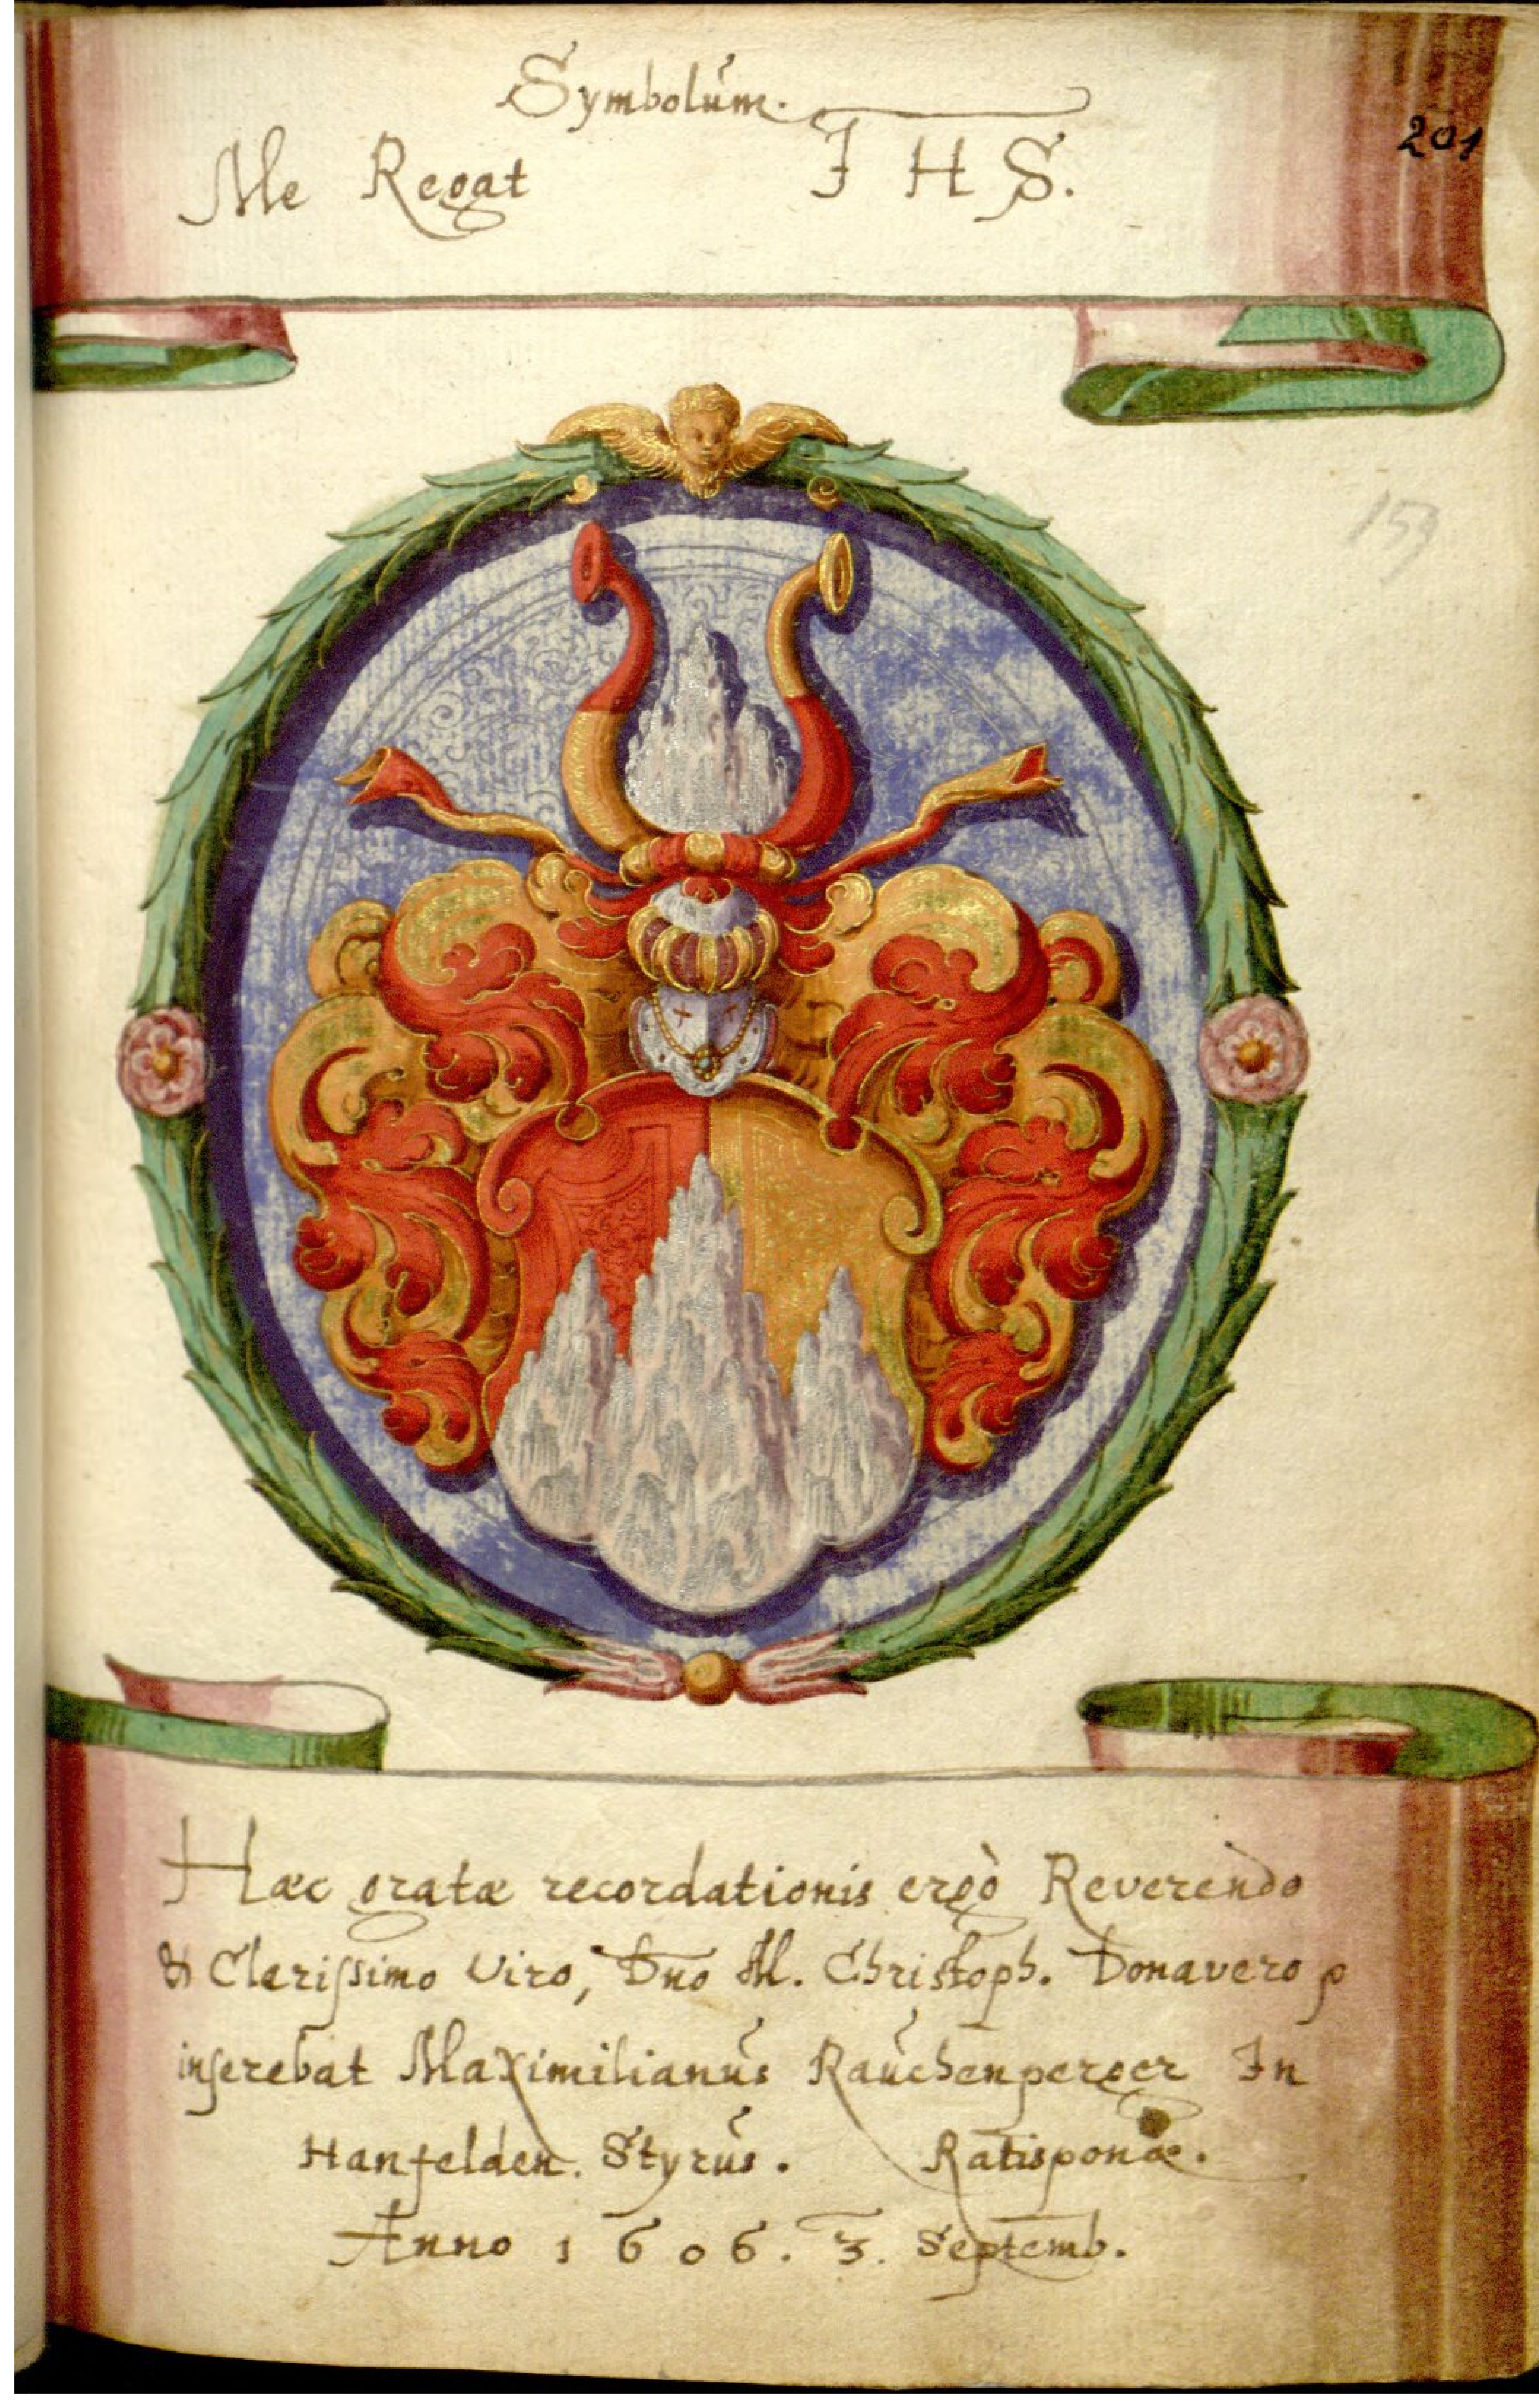 Symbolum.
Me Regat I H S.
201
159
Hæc gratæ recordationis ergò Reverendo
& Clerissimo Viro, Dno M. Christoph. Donavero
inserebat Maximilianus Rauchenperger In
Hanfelden. Styrus. Ratisponæ.
Anno 1606. 3. Septemb.